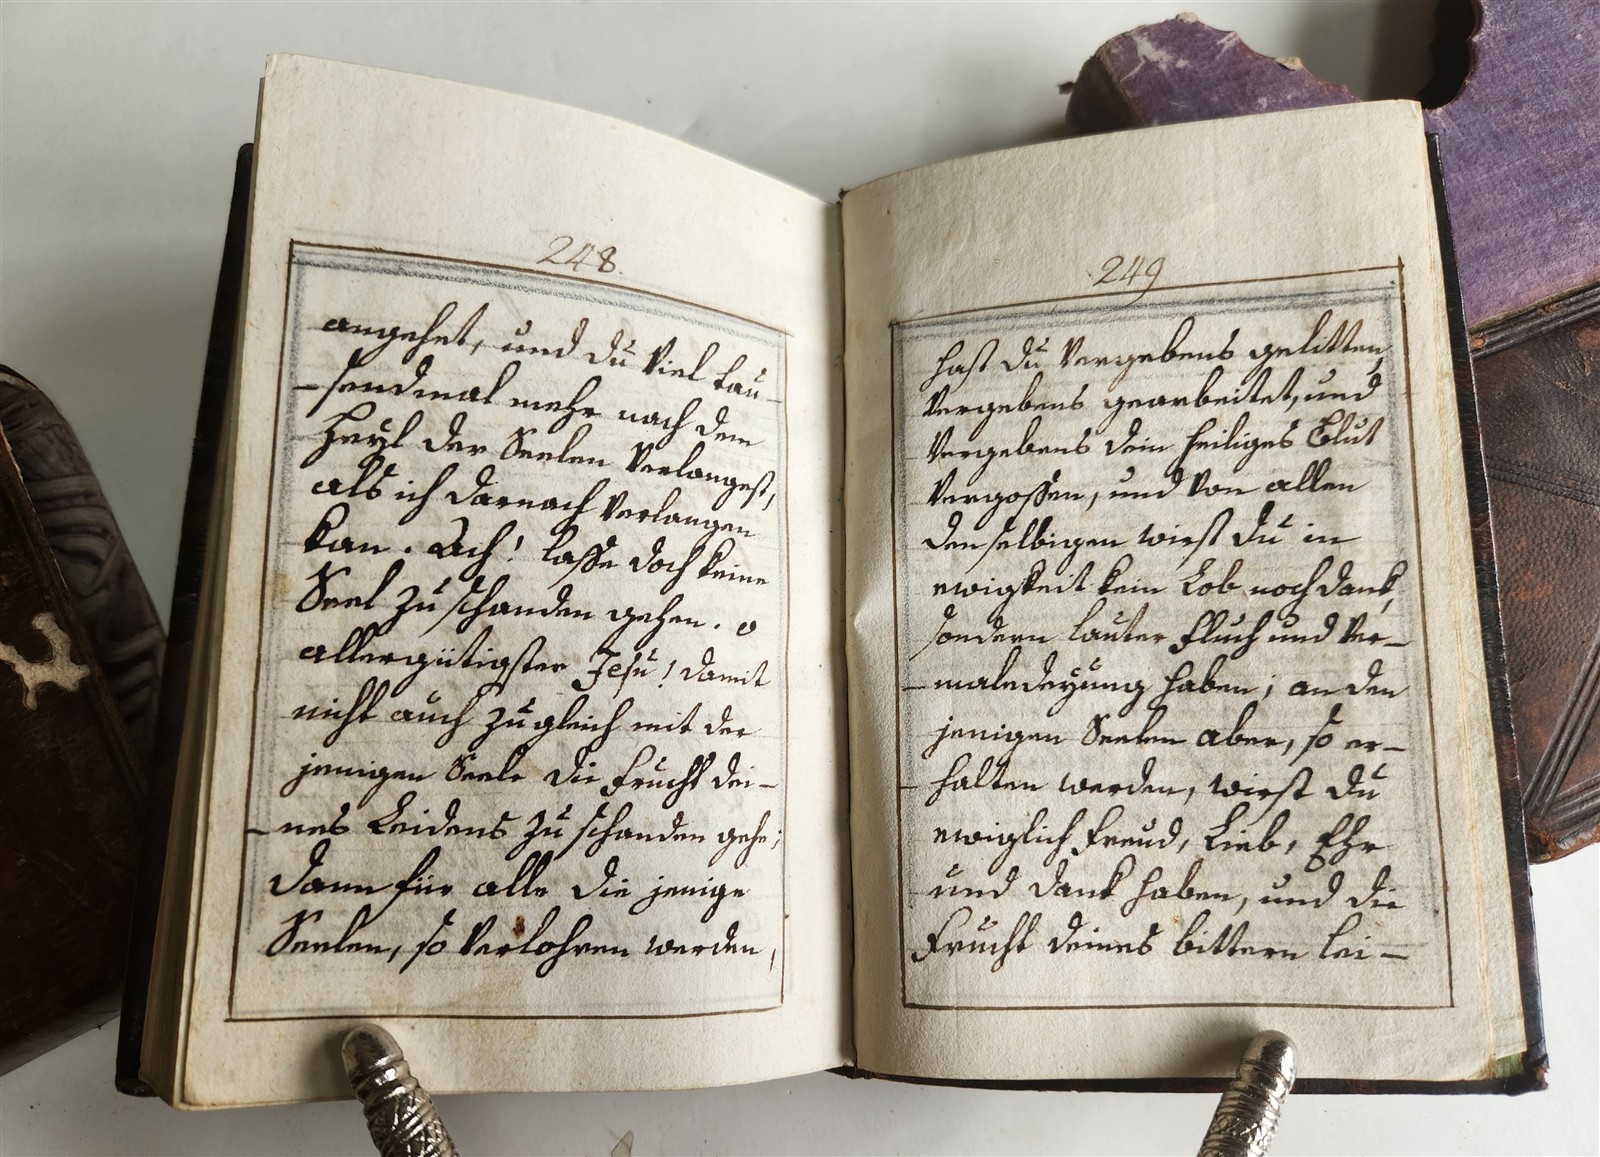 248.
angehet, und du viel tau-
sendmal mehr nach dem
Heyl der Seelen verlangest,
als ich darnach verlangen
kan. Ach! lasse doch keine
Seel zu schanden gehen. o
allergütigster Jesu! damit
nicht auch zugleich mit der
jenigen Seele die Frucht dei-
nes Leidens zu schanden gehe;
dann für alle die jenige
Seelen, so verlohren werden,
249
hast du vergebens gelitten,
vergebens gearbeitet, und
vergebens dein heiliges Blut
vergossen, und von allen
denselbigen wirst du in
ewigkeit kein Lob noch dank,
sondern lauter Fluch und ver-
maledeyung haben; an den
jenigen Seelen aber, so er-
halten werden, wirst du
ewiglich Freud, Lieb, Ehr
und dank haben, und die
Frucht deines bittern lei-